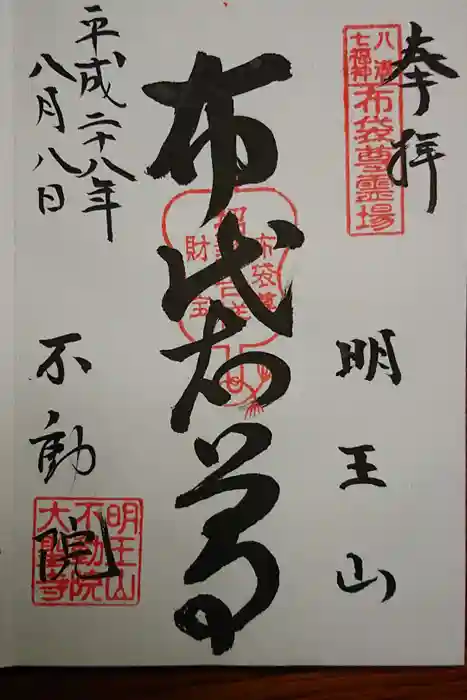 奉拝
七福神
布袋尊霊場
明王山
布袋尊
布袋尊
財宝
平成二十八年
八月八日
不動院
明王山
不動院
大聖寺